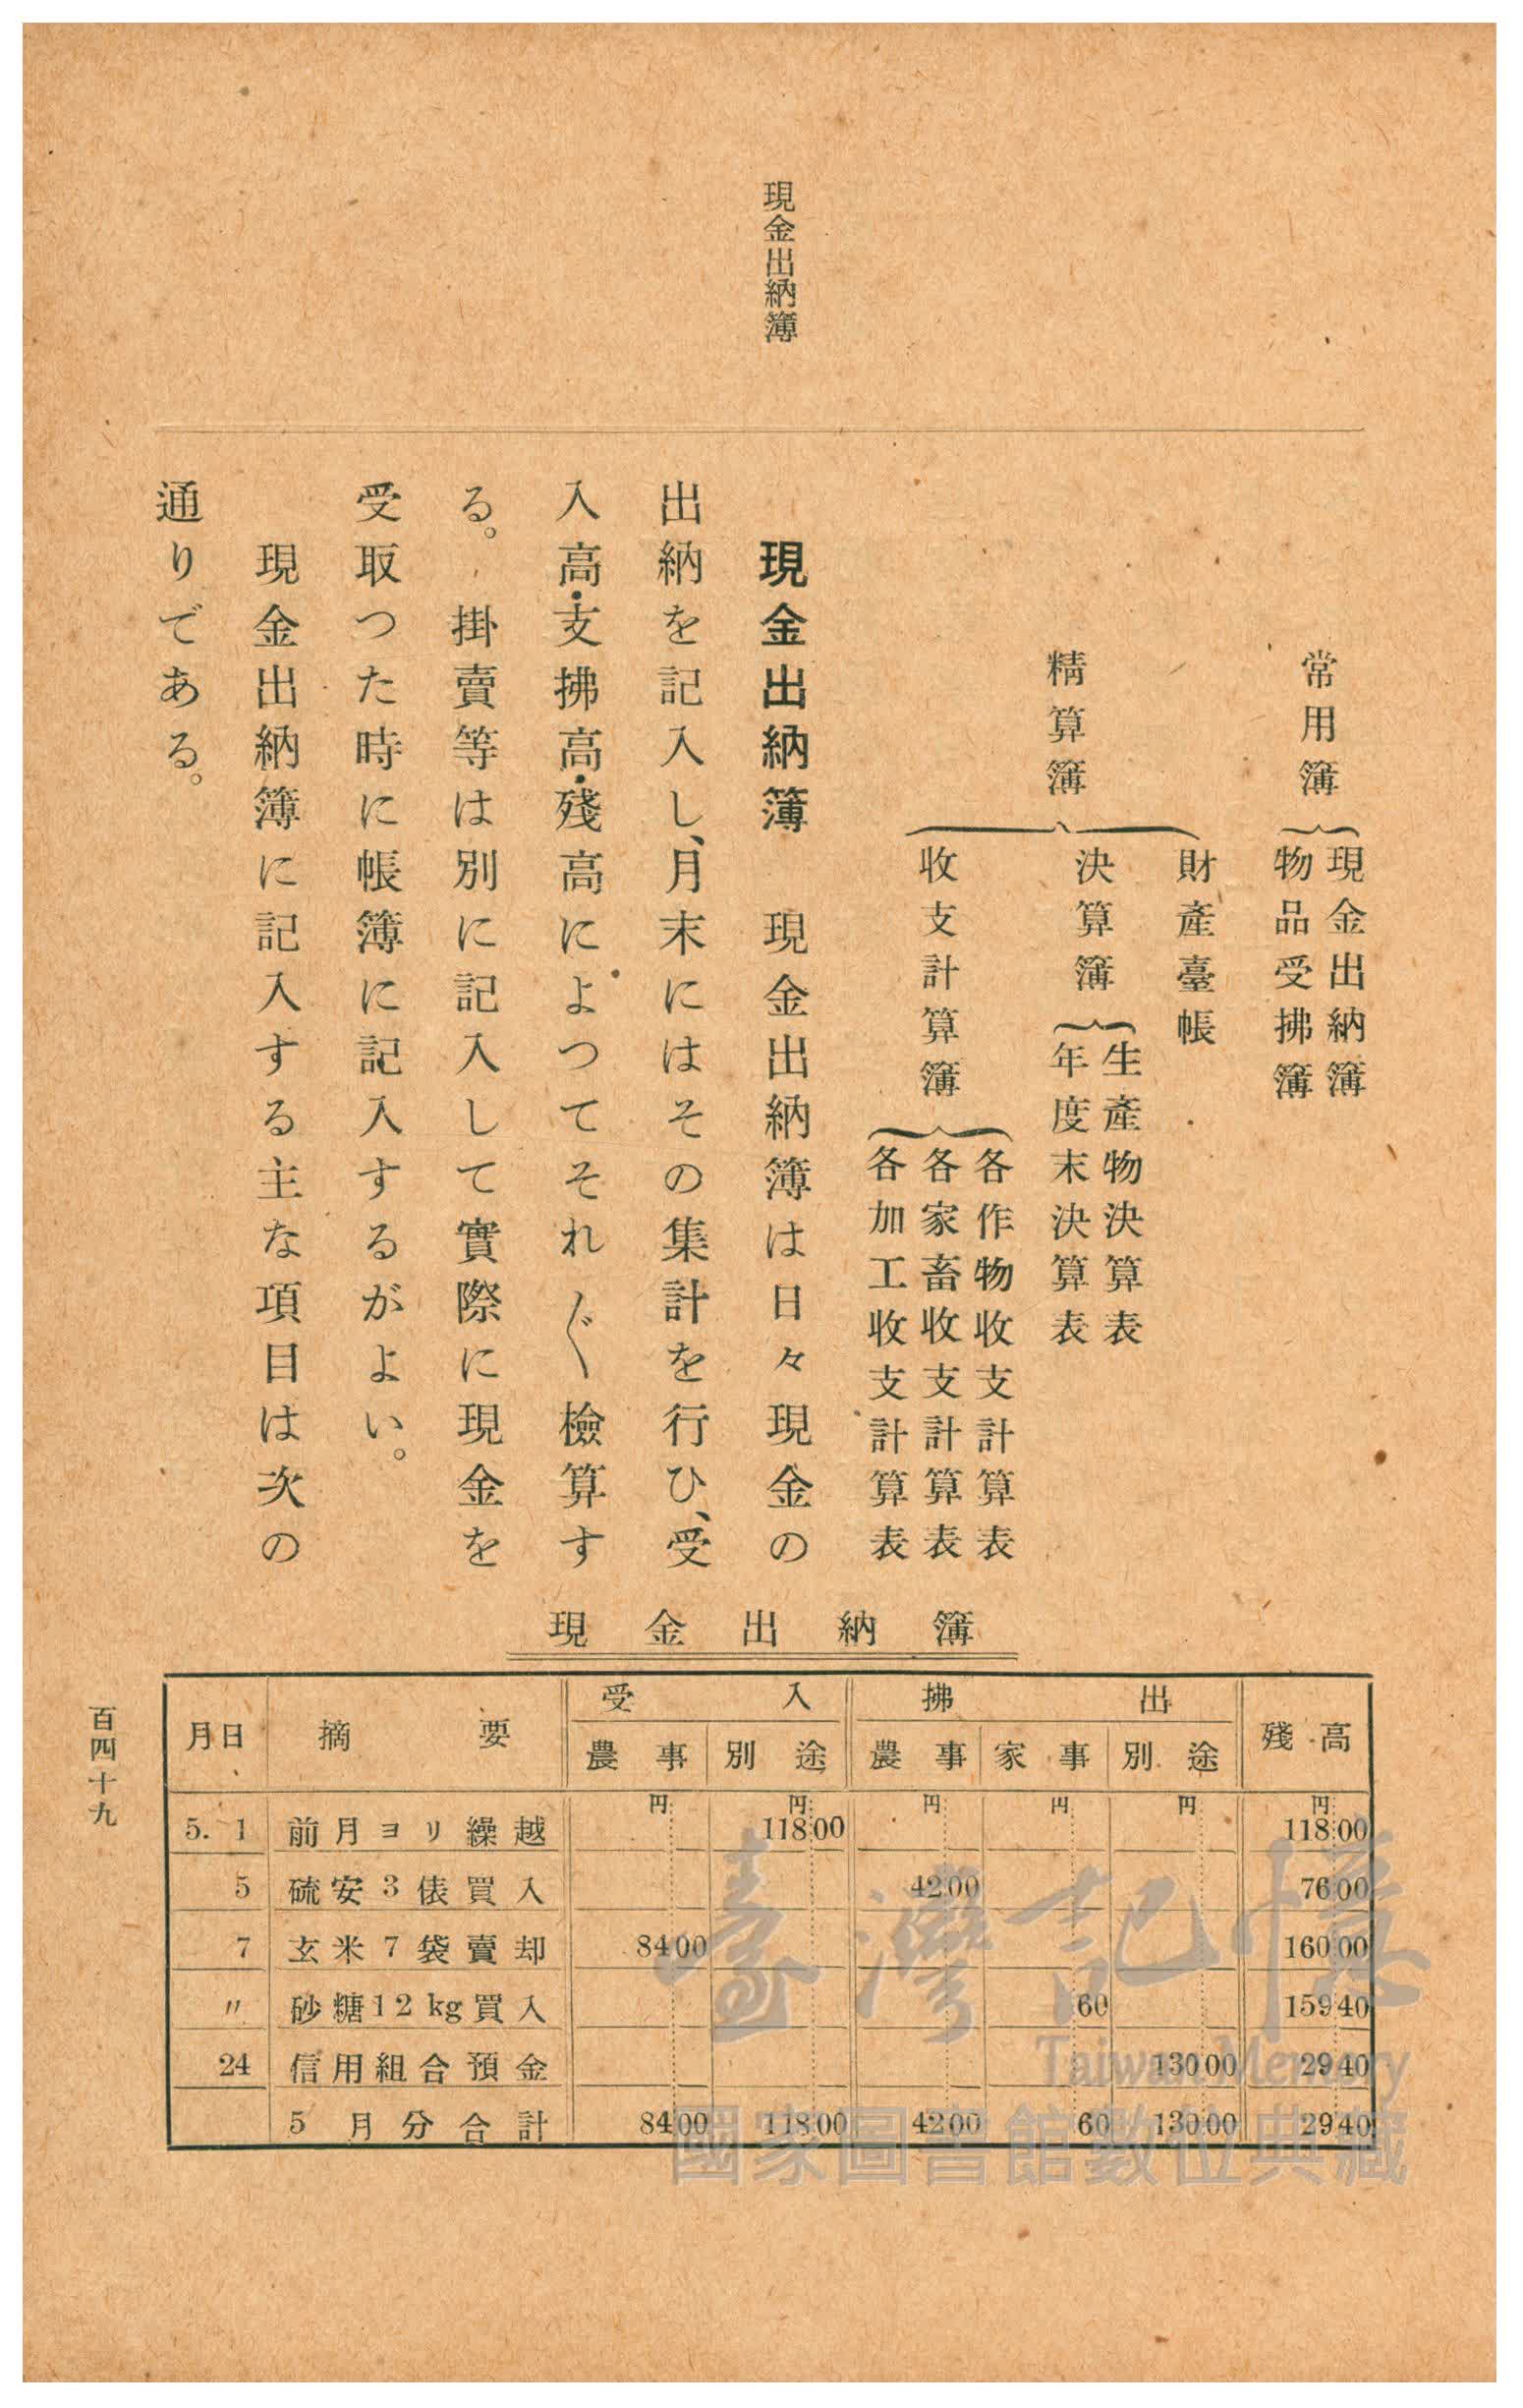 現金出納簿
常用簿
現金出納簿
物品受拂簿
精算簿
財產臺帳
決算簿
生產物決算表
年度末決算表
收支計算簿
各作物收支計算表
各家畜收支計算表
各加工收支計算表
現金出納簿　現金出納簿は日々現金の
出納を記入し、月末にはその集計を行ひ、受
入高・支拂高・殘高によつてそれ〴〵檢算す
る。掛賣等は別に記入して實際に現金を
受取つた時に帳簿に記入するがよい。
現金出納簿に記入する主な項目は次の
通りである。
現金出納簿
月日 摘要 受入 拂出 殘高
農事 別途 農事 家事 別途
円 円 円 円 円 円
5. 1 前月ヨリ繰越 118 00 118 00
5 硫安3俵買入 42 00 76 00
7 玄米7袋賣却 84 00 160 00
〃 砂糖12kg買入 60 159 40
24 信用組合預金 130 00 29 40
5月分合計 84 00 118 00 42 00 60 130 00 29 40
百四十九
臺灣記憶
Taiwan Memory
國家圖書館數位典藏